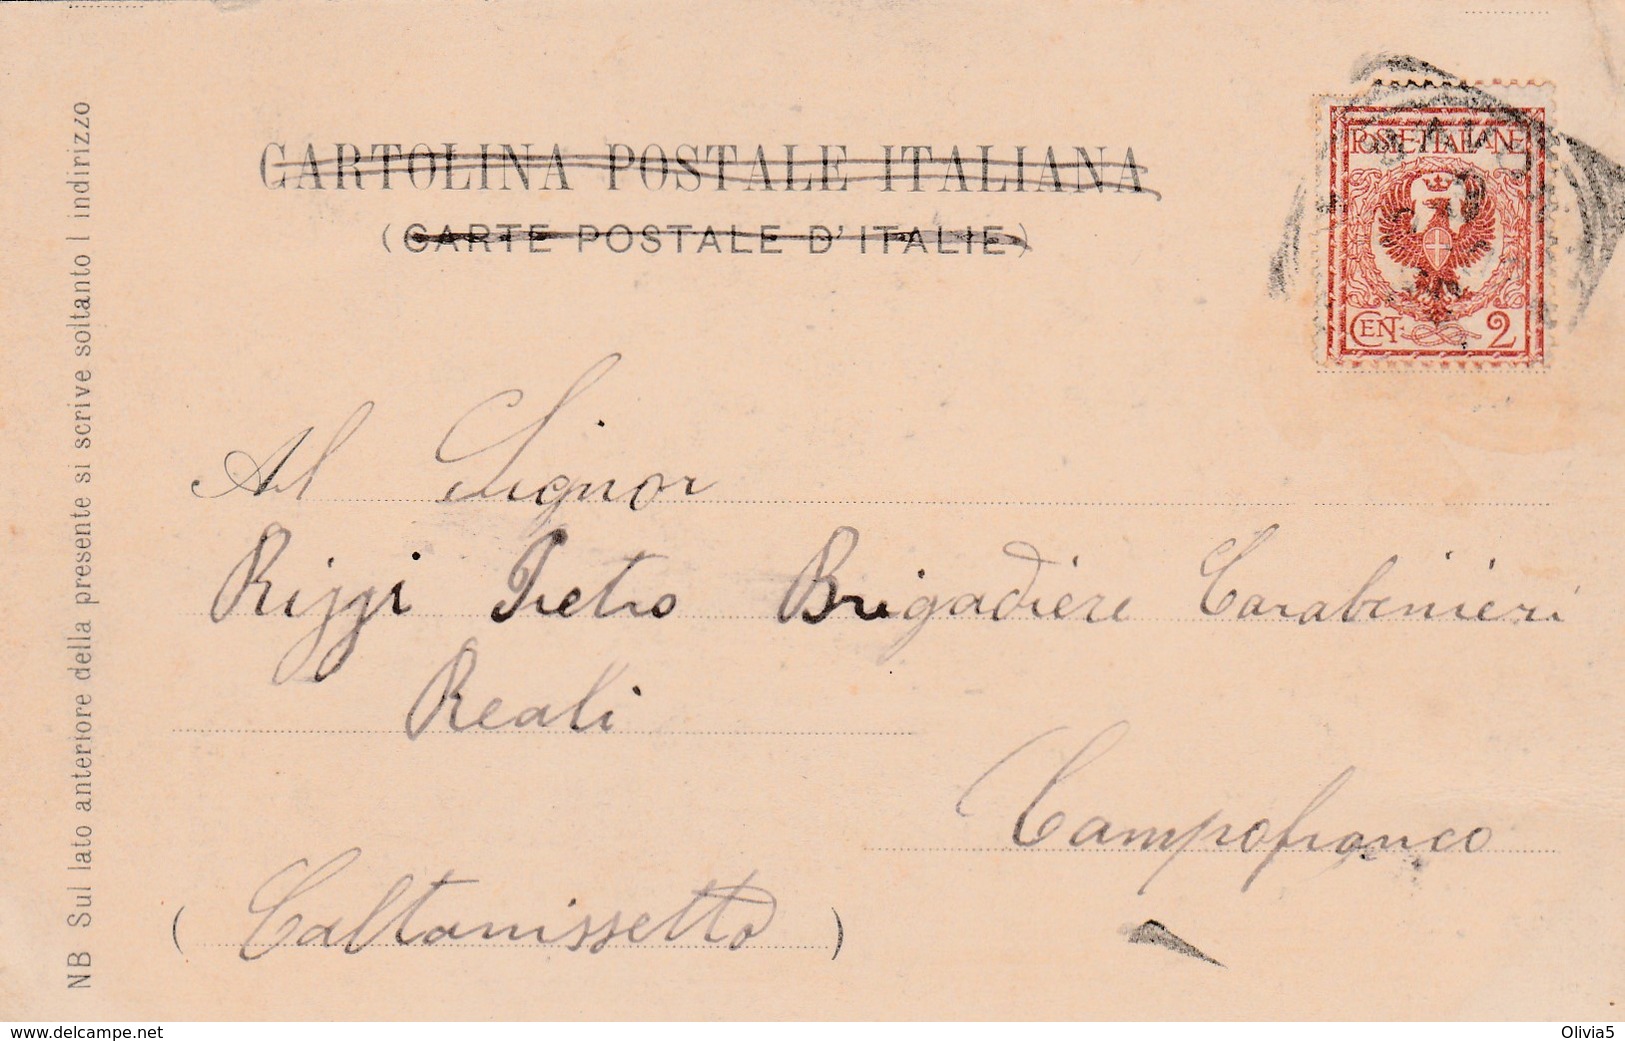 CARTOLINA POSTALE ITALIANA
(CARTE POSTALE D'ITALIE)
POSTE ITALIANE
CENT. 2
NB Sul lato anteriore della presente si scrive soltanto l indirizzo
Al Signor
Rizzi Pietro Brigadiere Carabinieri
Reali
Campofranco
(Caltanissetta)
www.delcampe.net
Olivia5